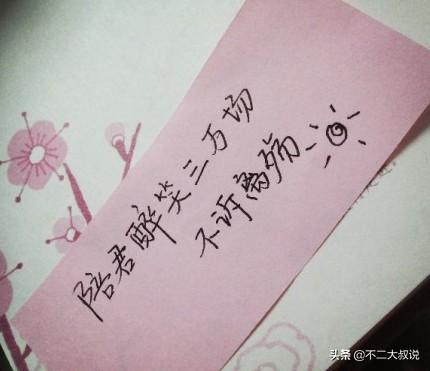 陪君醉笑三万场
不诉离殇
头条 @不二大叔说